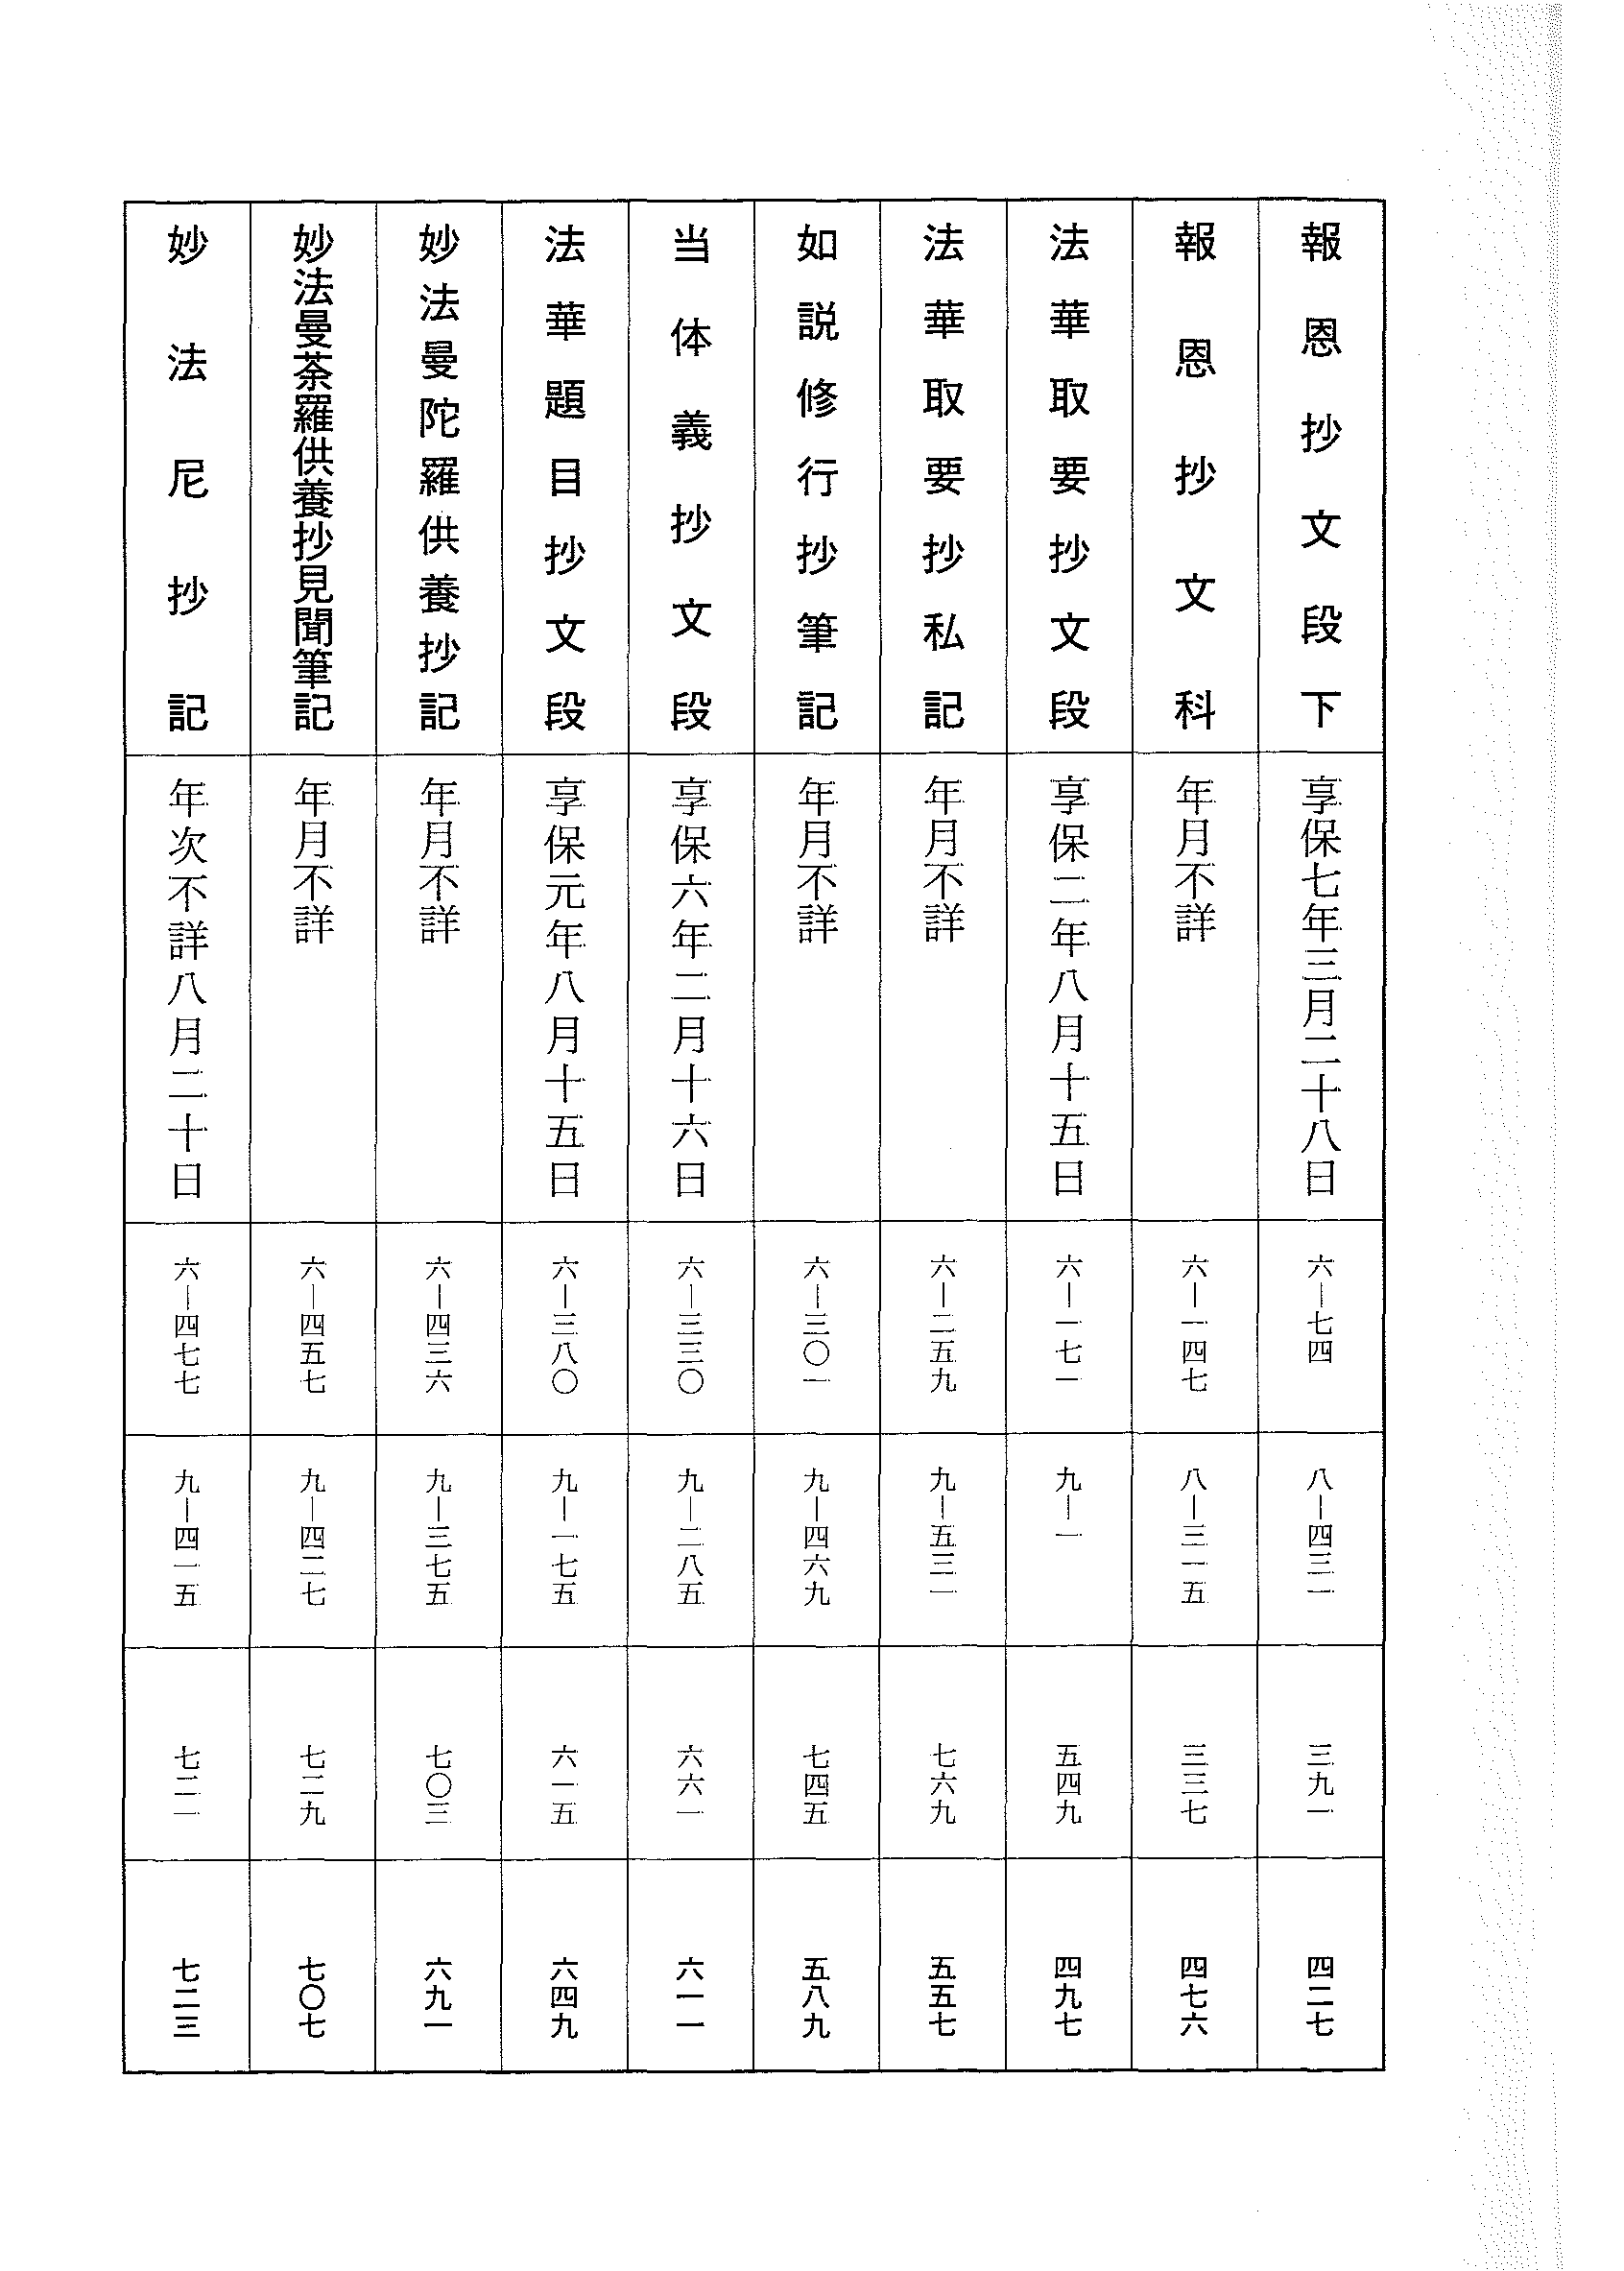 報恩抄文段下
享保七年三月二十八日
六―七四
八―四三一
三九一
四二七
報恩抄文科
年月不詳
六―一四七
八―三一五
三三七
四七六
法華取要抄文段
享保二年八月十五日
六―一七一
九―一
五四九
四九七
法華取要抄私記
年月不詳
六―二五九
九―五三一
七六九
五五七
如説修行抄筆記
年月不詳
六―三〇一
九―四六九
七四五
五八九
当体義抄文段
享保六年二月十六日
六―三三〇
九―二八五
六六一
六一一
法華題目抄文段
享保元年八月十五日
六―三八〇
九―一七五
六一五
六四九
妙法曼陀羅供養抄記
年月不詳
六―四三六
九―三七五
七〇三
六九一
妙法曼荼羅供養抄見聞筆記
年月不詳
六―四五七
九―四二七
七二九
七〇七
妙法尼抄記
年次不詳八月二十日
六―四七七
九―四一五
七二一
七二三